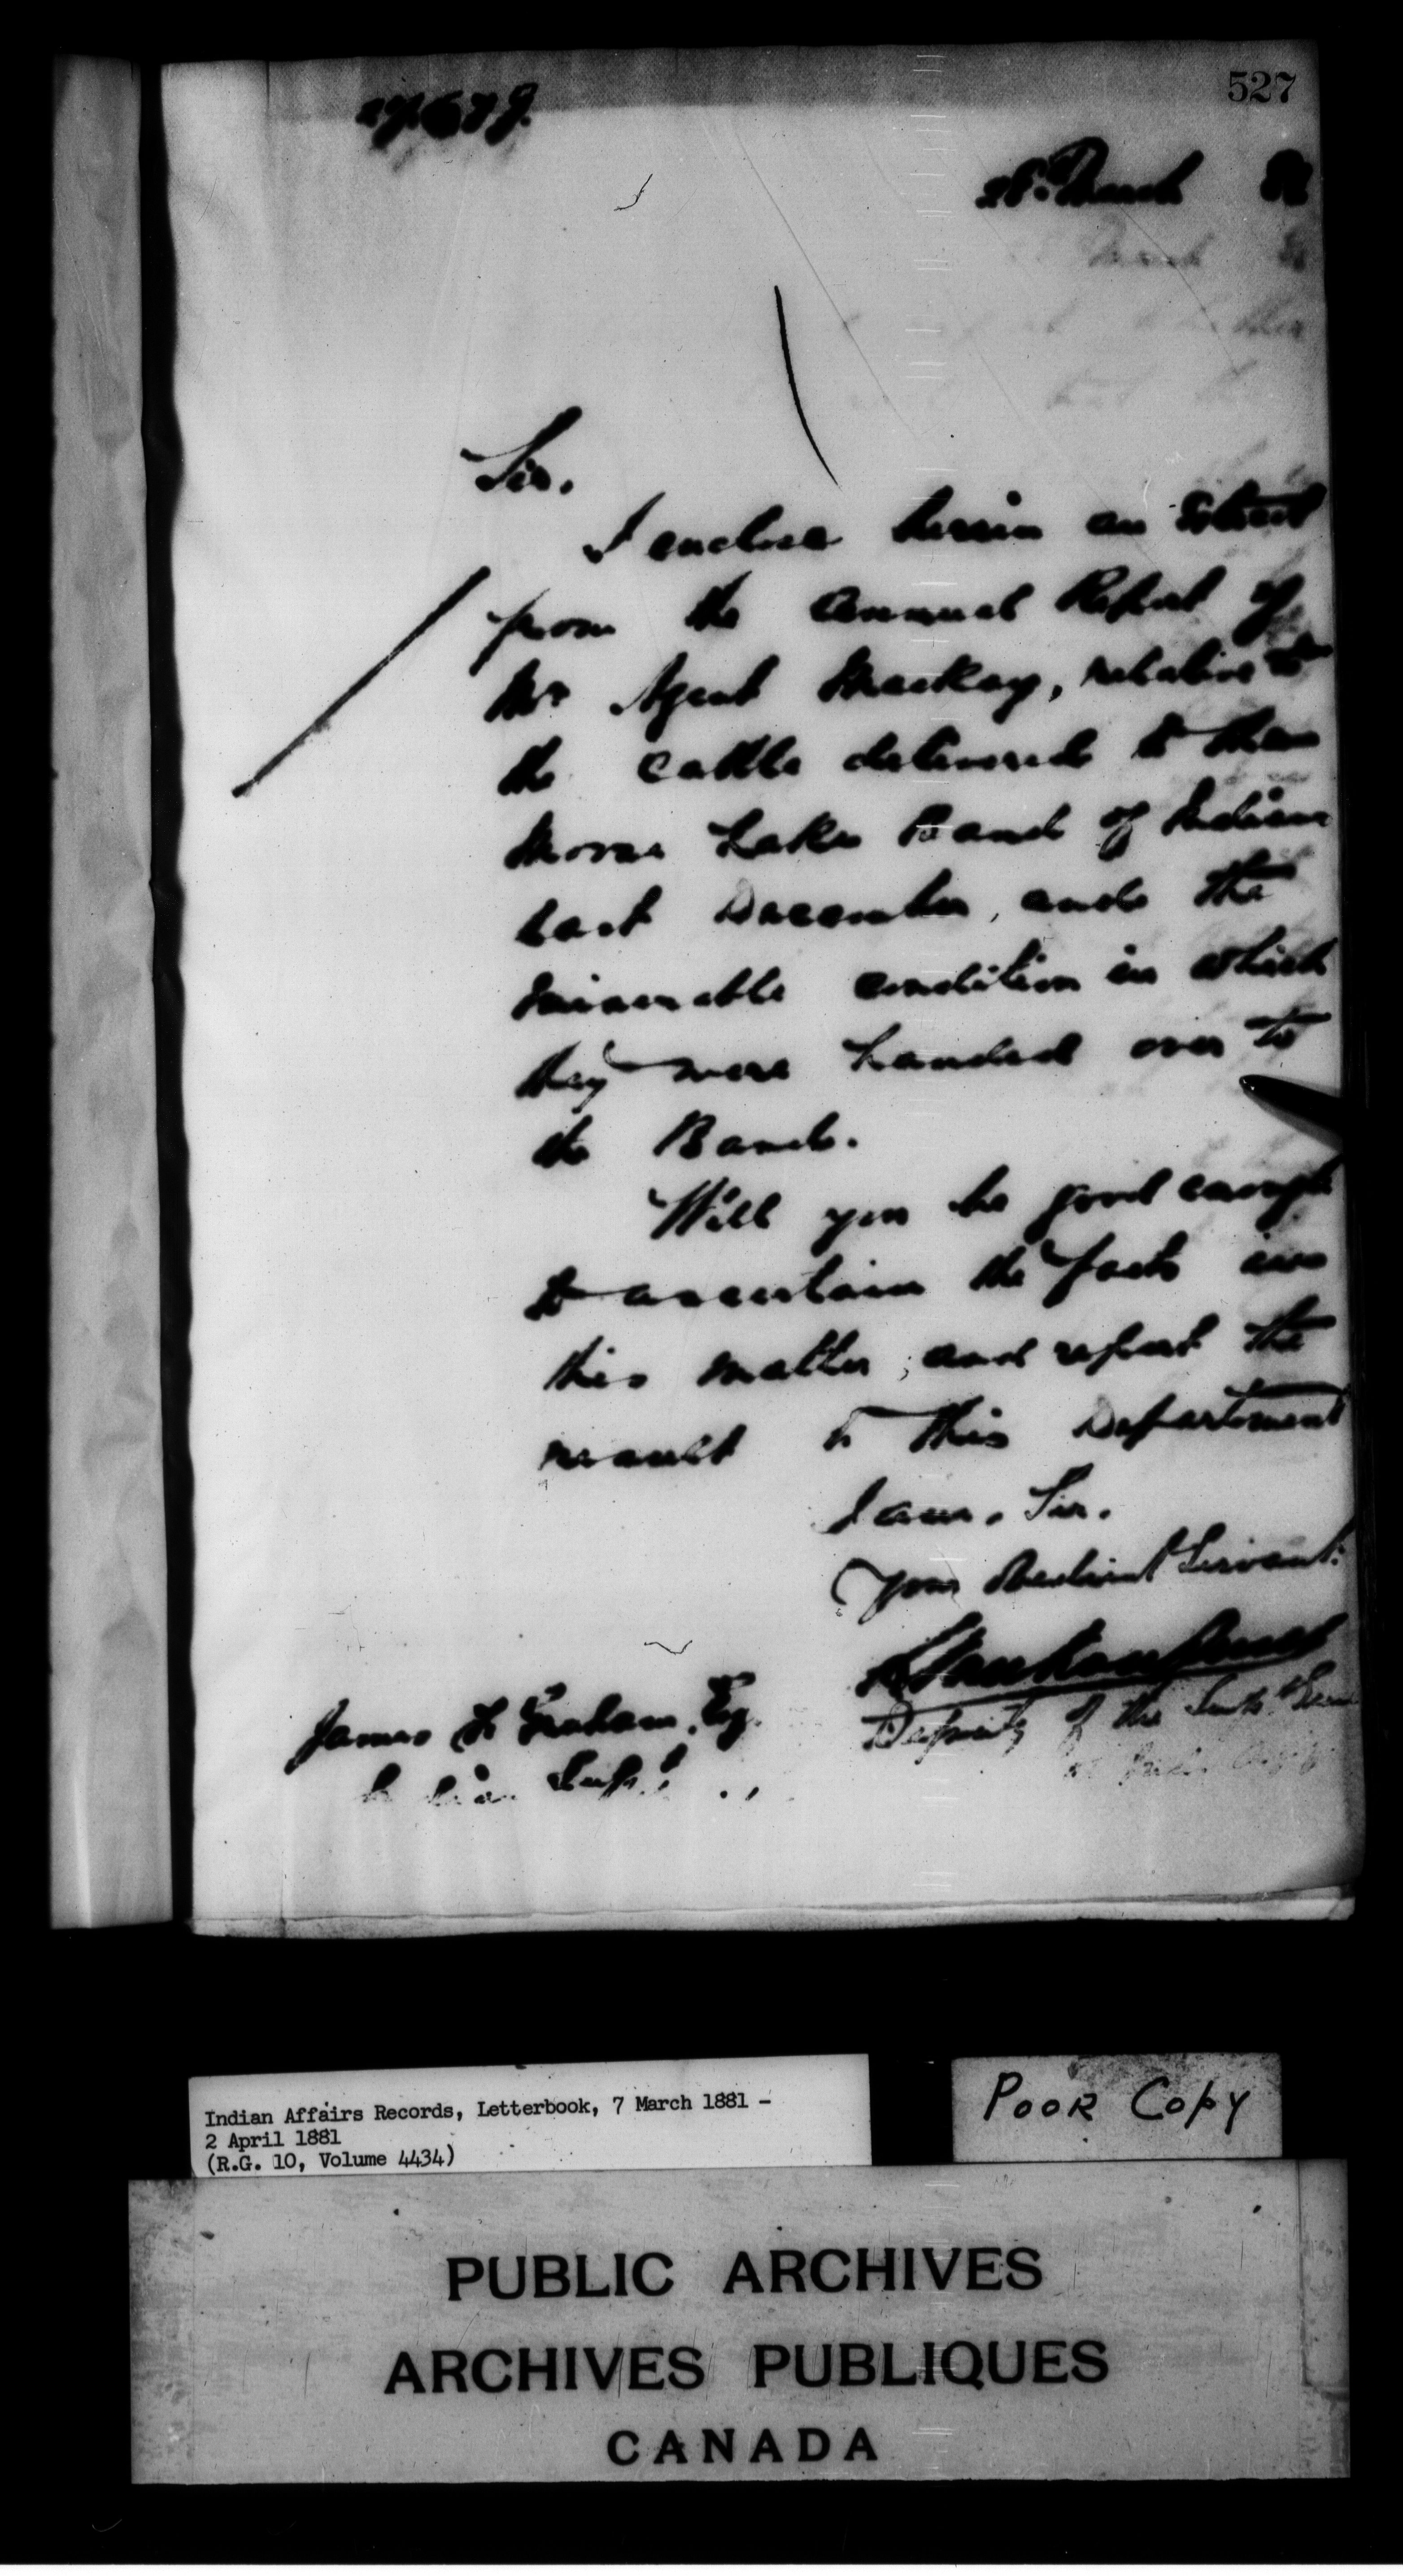 527
28. March 81
Sir.
I enclose herein an Extract
from the Annual Report of
Mr Agent Mackay, relative to
the cattle delivered to the
Moose Lake Band of Indians
last December, and the
miserable condition in which
they were handed over to
the Band.
Will you be good enough
to ascertain the facts in
this matter, and report the
result to this Department
I am, Sir.
Your Obedient Servant.
Deputy of the Supt Genl
James F Graham, Esq.
Indian Supt.
Indian Affairs Records, Letterbook, 7 March 1881 –
2 April 1881
(R.G. 10, Volume 4434)
POOR COPY
PUBLIC ARCHIVES
ARCHIVES PUBLIQUES
CANADA